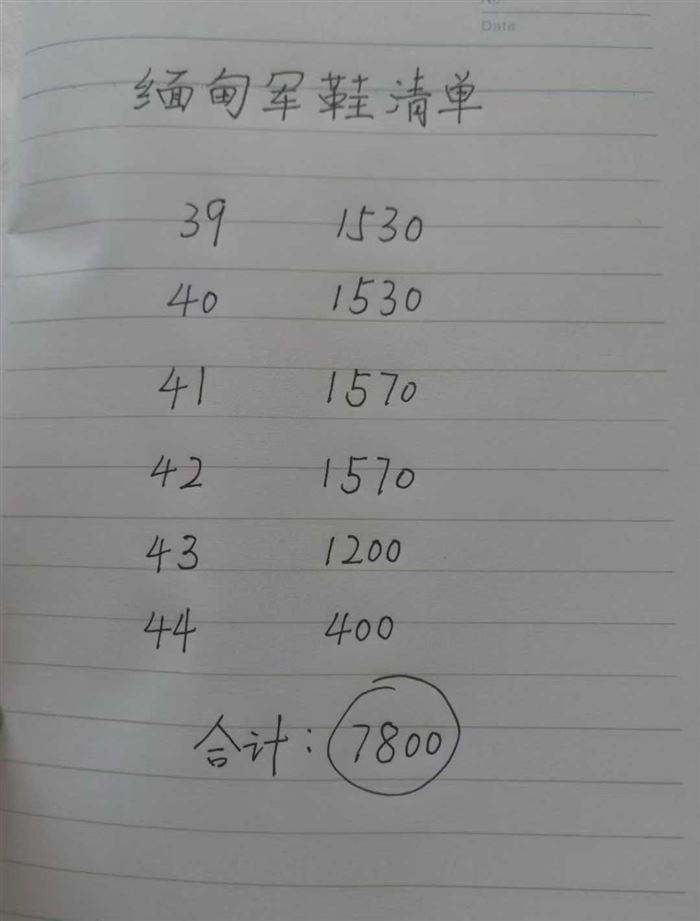 Date
缅甸军鞋清单
39 1530
40 1530
41 1570
42 1570
43 1200
44 400
合计：7800